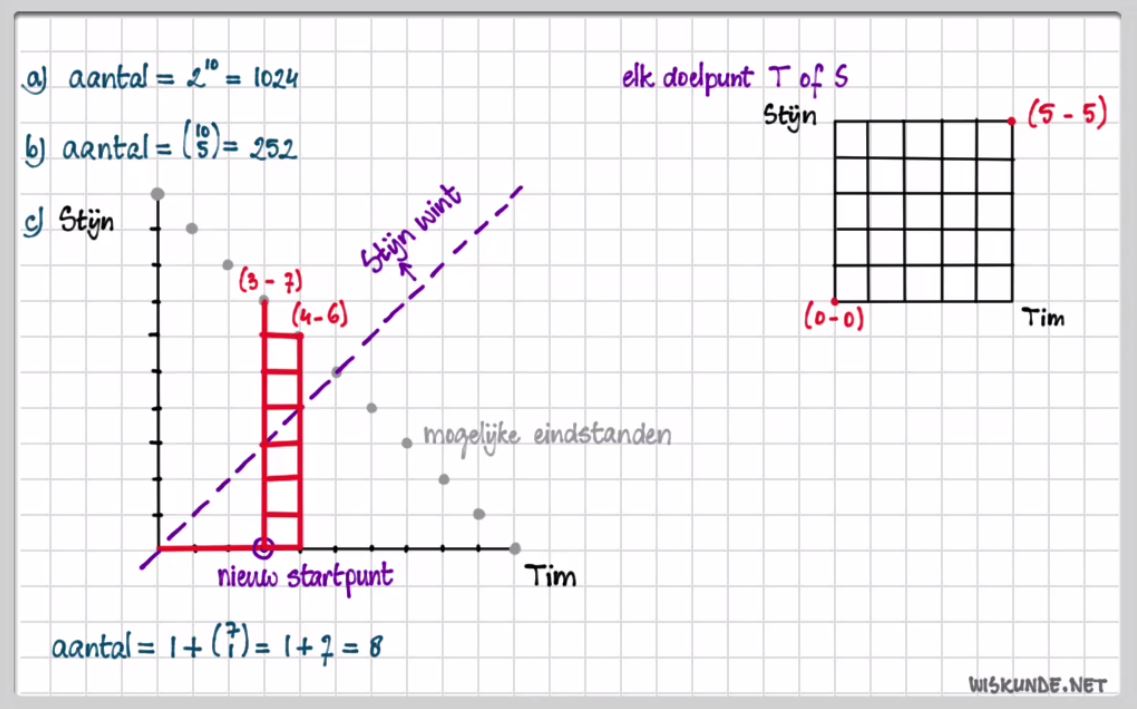 a) aantal = 2^10 = 1024
elk doelpunt T of S
Stijn
(5 - 5)
b) aantal = (10 5) = 252
c) Stijn
Stijn wint
(3 - 7)
(4-6)
(0-0)
Tim
mogelijke eindstanden
nieuw startpunt
Tim
aantal = 1 + (7 1) = 1 + 7 = 8
WISKUNDE.NET